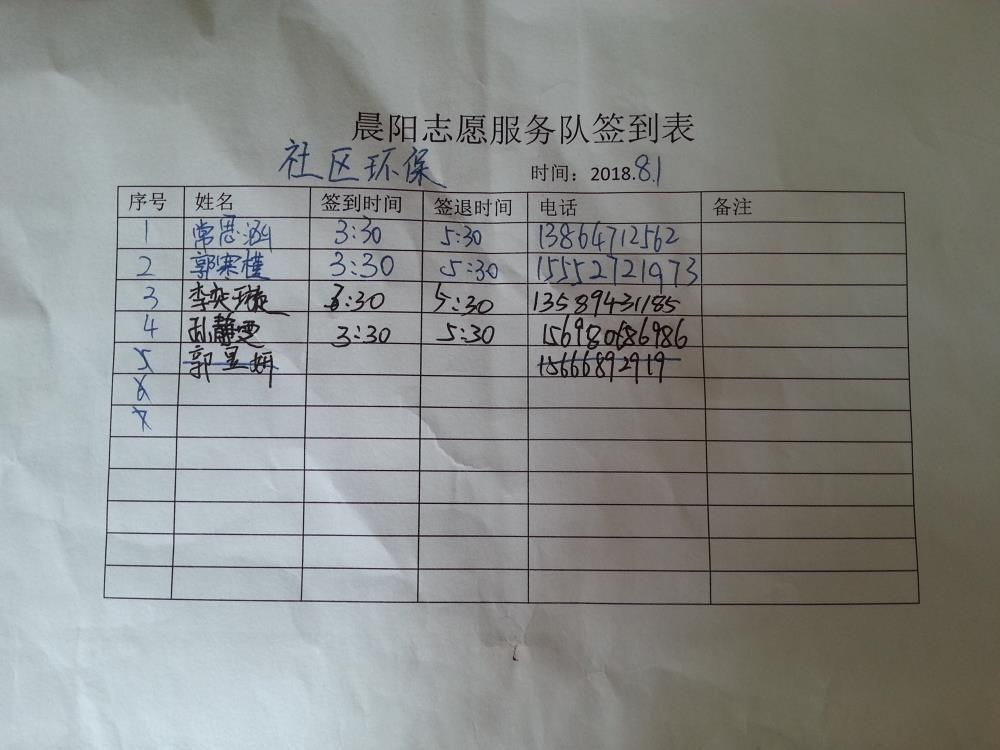 晨阳志愿服务队签到表
社区环保 时间：2018.8.1
序号 姓名 签到时间 签退时间 电话 备注
1 常思涵 3:30 5:30 13864712562
2 郭寒槿 3:30 5:30 15552721973
3 李奕璇 3:30 5:30 13589431185
4 孙静雯 3:30 5:30 156980686986
5 郭昱妍 15666892919
6
7